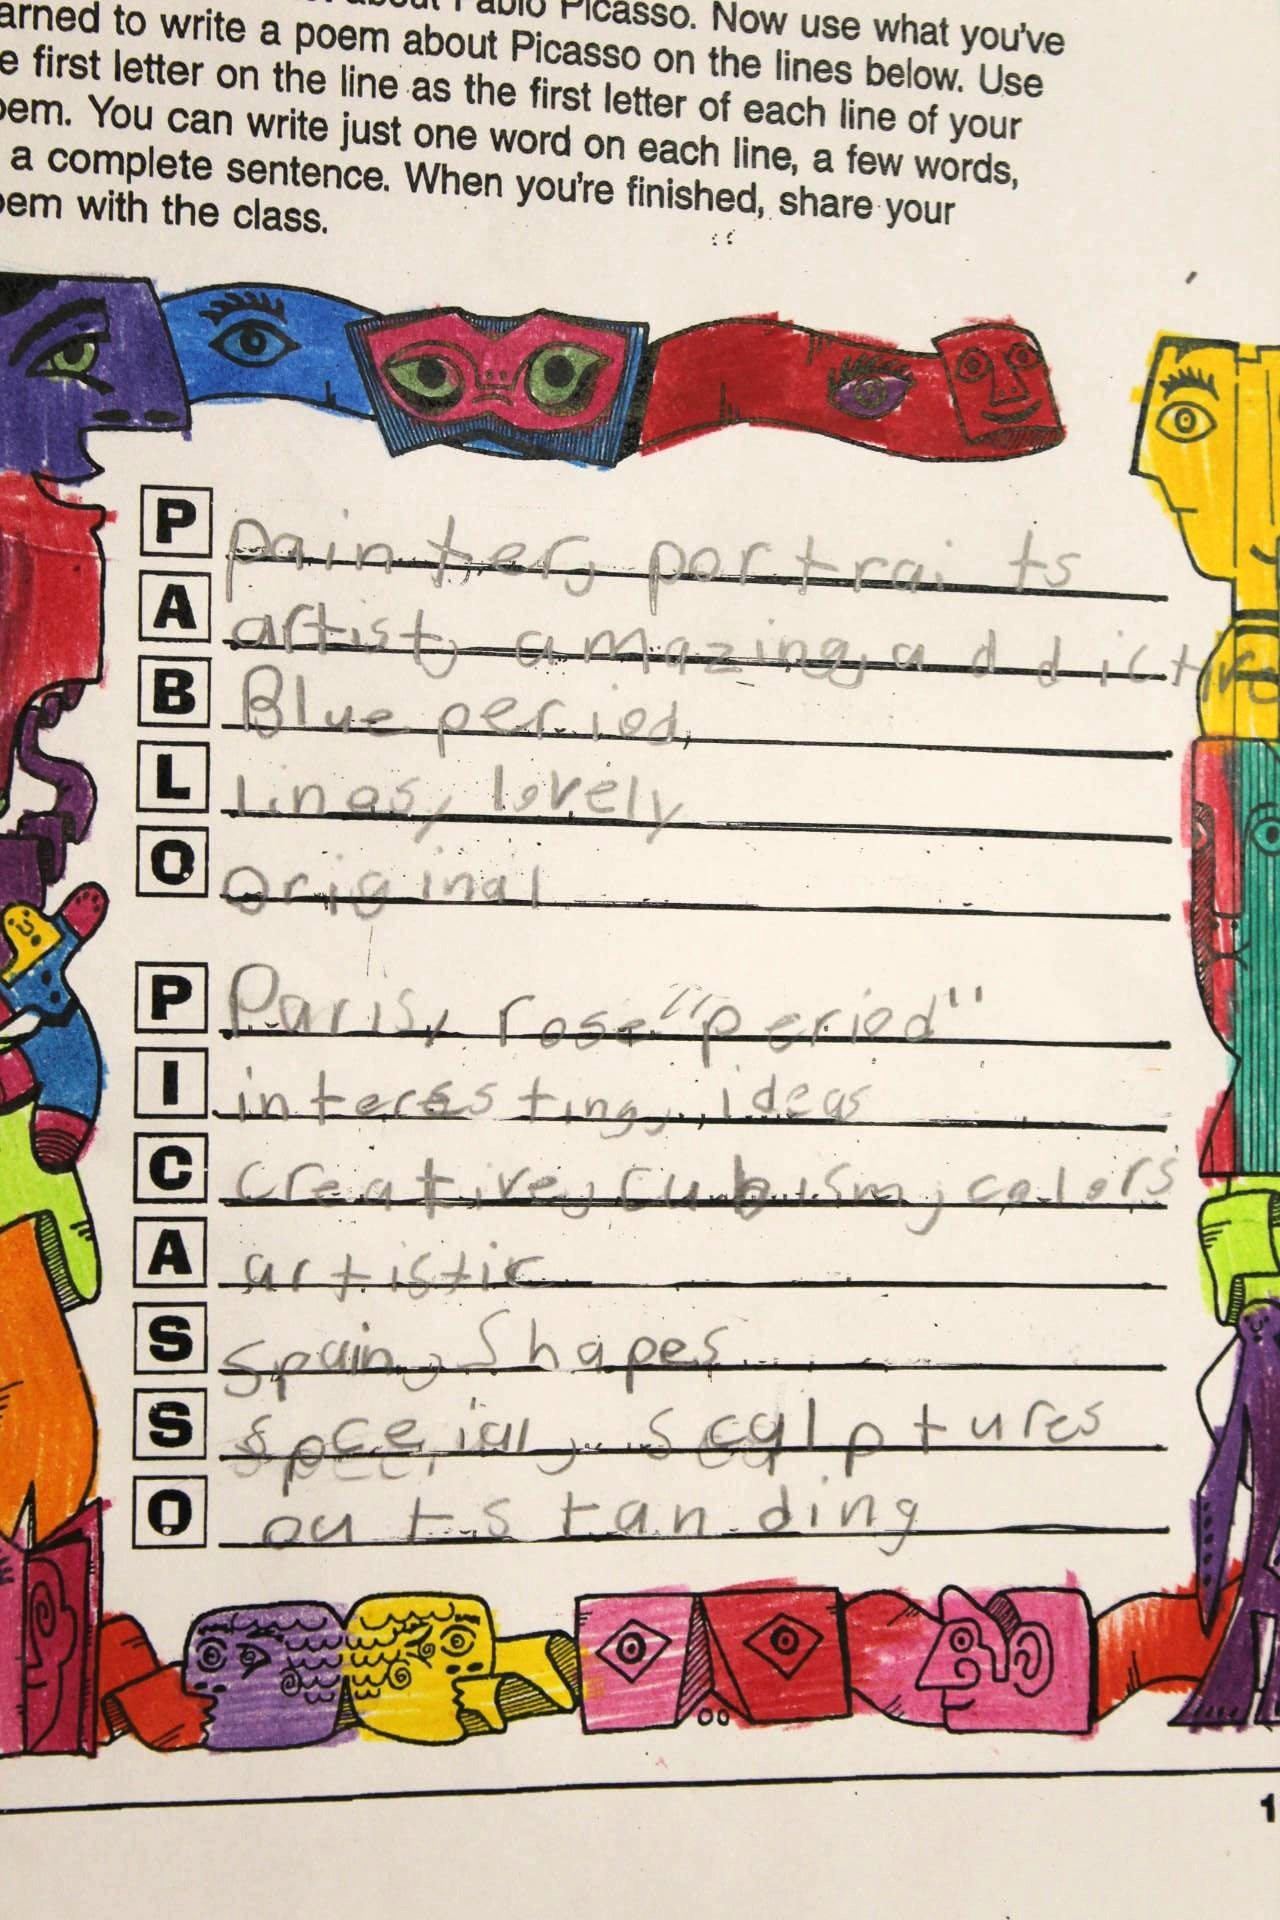 about Pablo Picasso. Now use what you've
arned to write a poem about Picasso on the lines below. Use
e first letter on the line as the first letter of each line of your
oem. You can write just one word on each line, a few words,
a complete sentence. When you're finished, share your
oem with the class.
P painter, portraits
A artist, amazing, addictive
B Blue period,
L lines, lovely
O original
P Paris, rose "period"
I interesting, ideas
C creative, cubism, colors
A artistic
S Spain, Shapes
S special, scalptures
O outstanding
1